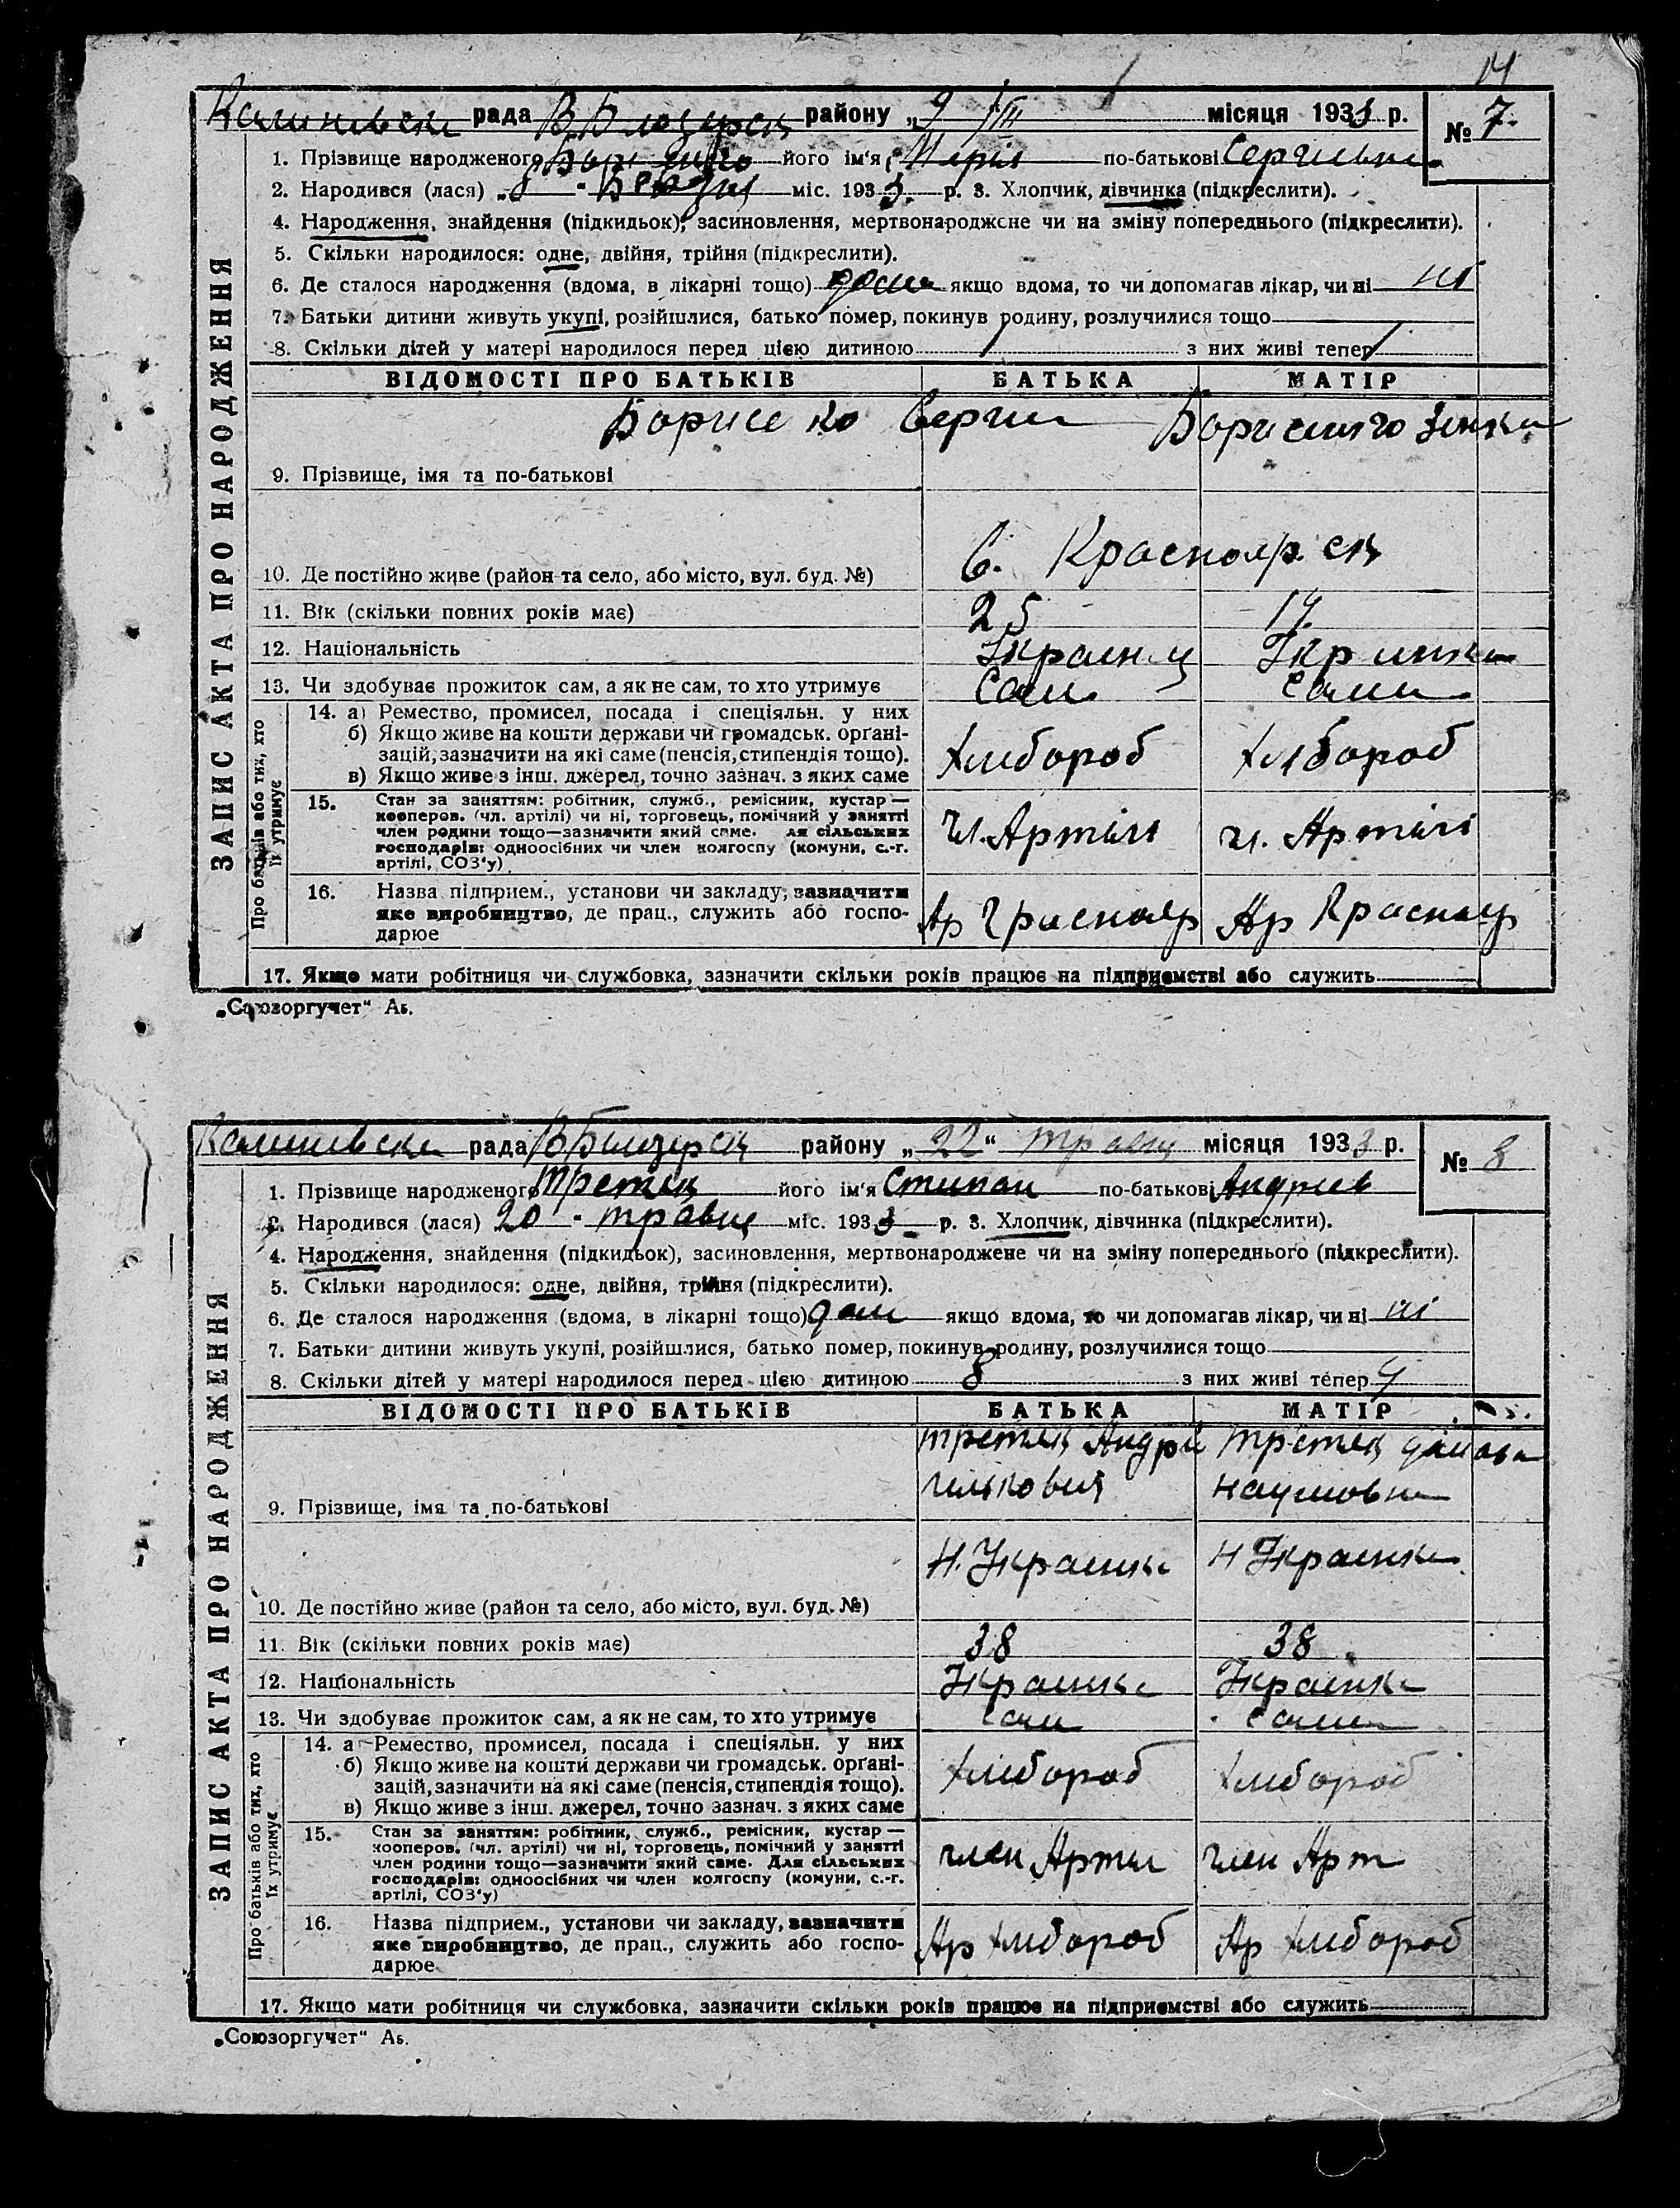 14
Калинівська рада В.Білозерськ району „ 9 /III місяця 1933 р. № 7.
1. Прізвище народженого його ім'я Марія по-батькові Сергиівна
2. Народився (лася) „8 - Березня міс. 193 3. р. 3. Хлопчик, дівчинка (підкреслити).
4. Народження, знайдення (підкидьок), засиновлення, мертвонароджене чи на зміну попереднього (підкреслити).
5. Скільки народилося: одне, двійня, трійня (підкреслити).
6. Де сталося народження (вдома, в лікарні тощо) дома якщо вдома, то чи допомагав лікар, чи ні ні
7. Батьки дитини живуть укупі, розійшлися, батько помер, покинув родину, розлучилися тощо
8. Скільки дітей у матері народилося перед цією дитиною / з них живі тепер /
ВІДОМОСТІ ПРО БАТЬКІВ БАТЬКА МАТІР
Борисенко Сергий Борисенко Зінька
9. Прізвище, імя та по-батькові
С. Красноярськ
10. Де постійно живе (район та село, або місто, вул. буд. №)
11. Вік (скільки повних років має) 25 19
12. Національність Украинец Украинка
13. Чи здобуває прожиток сам, а як не сам, то хто утримує Сам Сама
14. а) Ремество, промисел, посада і спеціяльн. у них
б) Якщо живе на кошти держави чи громадськ. орґані-
зацій, зазначити на які саме (пенсія, стипендія тощо).
в) Якщо живе з інш. джерел, точно зазнач. з яких саме
хлібороб хлібороб
15. Стан за заняттям: робітник, служб., ремісник, кустар —
кооперов. (чл. артілі) чи ні, торговець, помічний у занятті
член родини тощо—зазначити який саме. ля сільських
господарів: одноосібних чи член колгоспу (комуни, с.-г.
артілі, СОЗ'у)
чл. Артілі чл. Артілі
16. Назва підприєм., установи чи закладу, зазначити
яке виробництво, де прац., служить або госпо-
дарює
Ар Краснояр Ар Краснояр
17. Якщо мати робітниця чи службовка, зазначити скільки років працює на підприємстві або служить
ЗАПИС АКТА ПРО НАРОДЖЕННЯ
Про батьків або тих, хто
їх утримує
„Союзоргучет" Аь.
Калинівська рада В Білозерськ району „ 22 " травня місяця 1933 р. № 8
1. Прізвище народженого Третяк його ім'я Степан по-батькові Андриев
2. Народився (лася) 20 - травня міс. 193 3 р. 3. Хлопчик, дівчинка (підкреслити).
4. Народження, знайдення (підкидьок), засиновлення, мертвонароджене чи на зміну попереднього (підкреслити).
5. Скільки народилося: одне, двійня, трійня (підкреслити).
6. Де сталося народження (вдома, в лікарні тощо) дома якщо вдома, то чи допомагав лікар, чи ні ні
7. Батьки дитини живуть укупі, розійшлися, батько помер, покинув родину, розлучилися тощо
8. Скільки дітей у матері народилося перед цією дитиною 8 з них живі тепер 4
ВІДОМОСТІ ПРО БАТЬКІВ БАТЬКА МАТІР
Третяк Андрій Третяк
Наумовна
9. Прізвище, імя та по-батькові
Н. Украинка Н Украинка
10. Де постійно живе (район та село, або місто, вул. буд. №)
11. Вік (скільки повних років має) 38 38
12. Національність Украинка Украинка
13. Чи здобуває прожиток сам, а як не сам, то хто утримує Сам Сама
14. а Ремество, промисел, посада і спеціяльн. у них
б) Якщо живе на кошти держави чи громадськ. орґані-
зацій, зазначити на які саме (пенсія, стипендія тощо).
в) Якщо живе з інш. джерел, точно зазнач. з яких саме
хлібороб хлібороб
15. Стан за заняттям: робітник, служб., ремісник, кустар —
кооперов. (чл. артілі) чи ні, торговець, помічний у занятті
член родини тощо—зазначити який саме. Для сільських
господарів: одноосібних чи член колгоспу (комуни, с.-г.
артілі, СОЗ'у)
член Артил член Арт
16. Назва підприєм., установи чи закладу, зазначити
яке виробництво, де прац., служить або госпо-
дарює
Ар хлібороб Ар хлібороб
17. Якщо мати робітниця чи службовка, зазначити скільки років працює на підприємстві або служить
ЗАПИС АКТА ПРО НАРОДЖЕННЯ
Про батьків або тих, хто
їх утримує
„Союзоргучет" Аь.